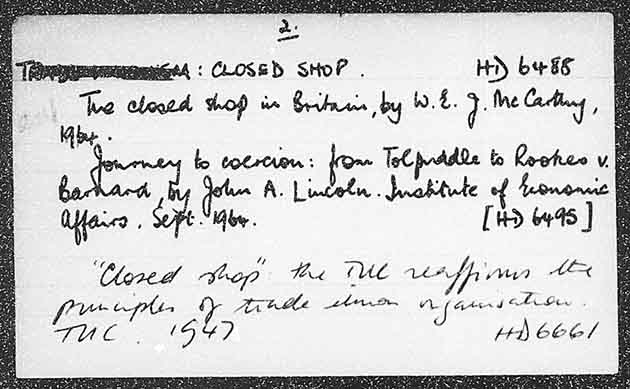 2.
: CLOSED SHOP. HD 6488
The closed shop in Britain, by W. E. J. McCarthy,
1964.
Journey to coercion: from Tolpuddle to Rookes v.
Barnard, by John A. Lincoln. Institute of Economic
Affairs. Sept. 1964. [HD 6495]
"Closed shop" : the TUC reaffirms the
principles of trade union organisation.
TUC. 1947 HD6661